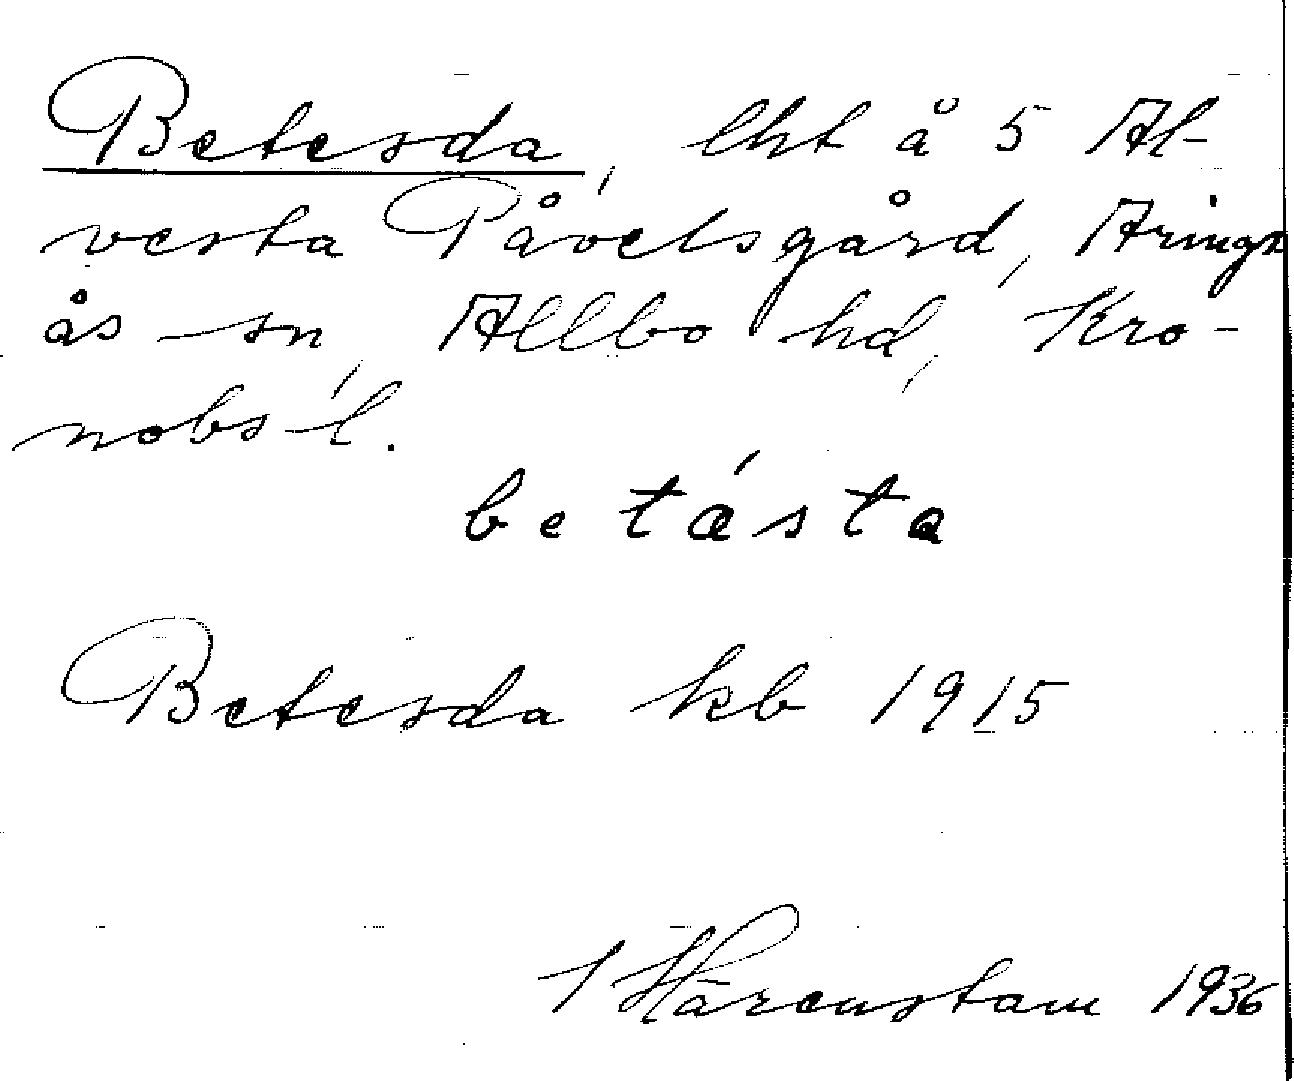 Betesda, lht å 5 Al-
vesta Påvelsgård, Arings
ås sn, Allbo hd, Kro-
nobs l.
betásta
Betesda kb 1915
Härenstam 1936